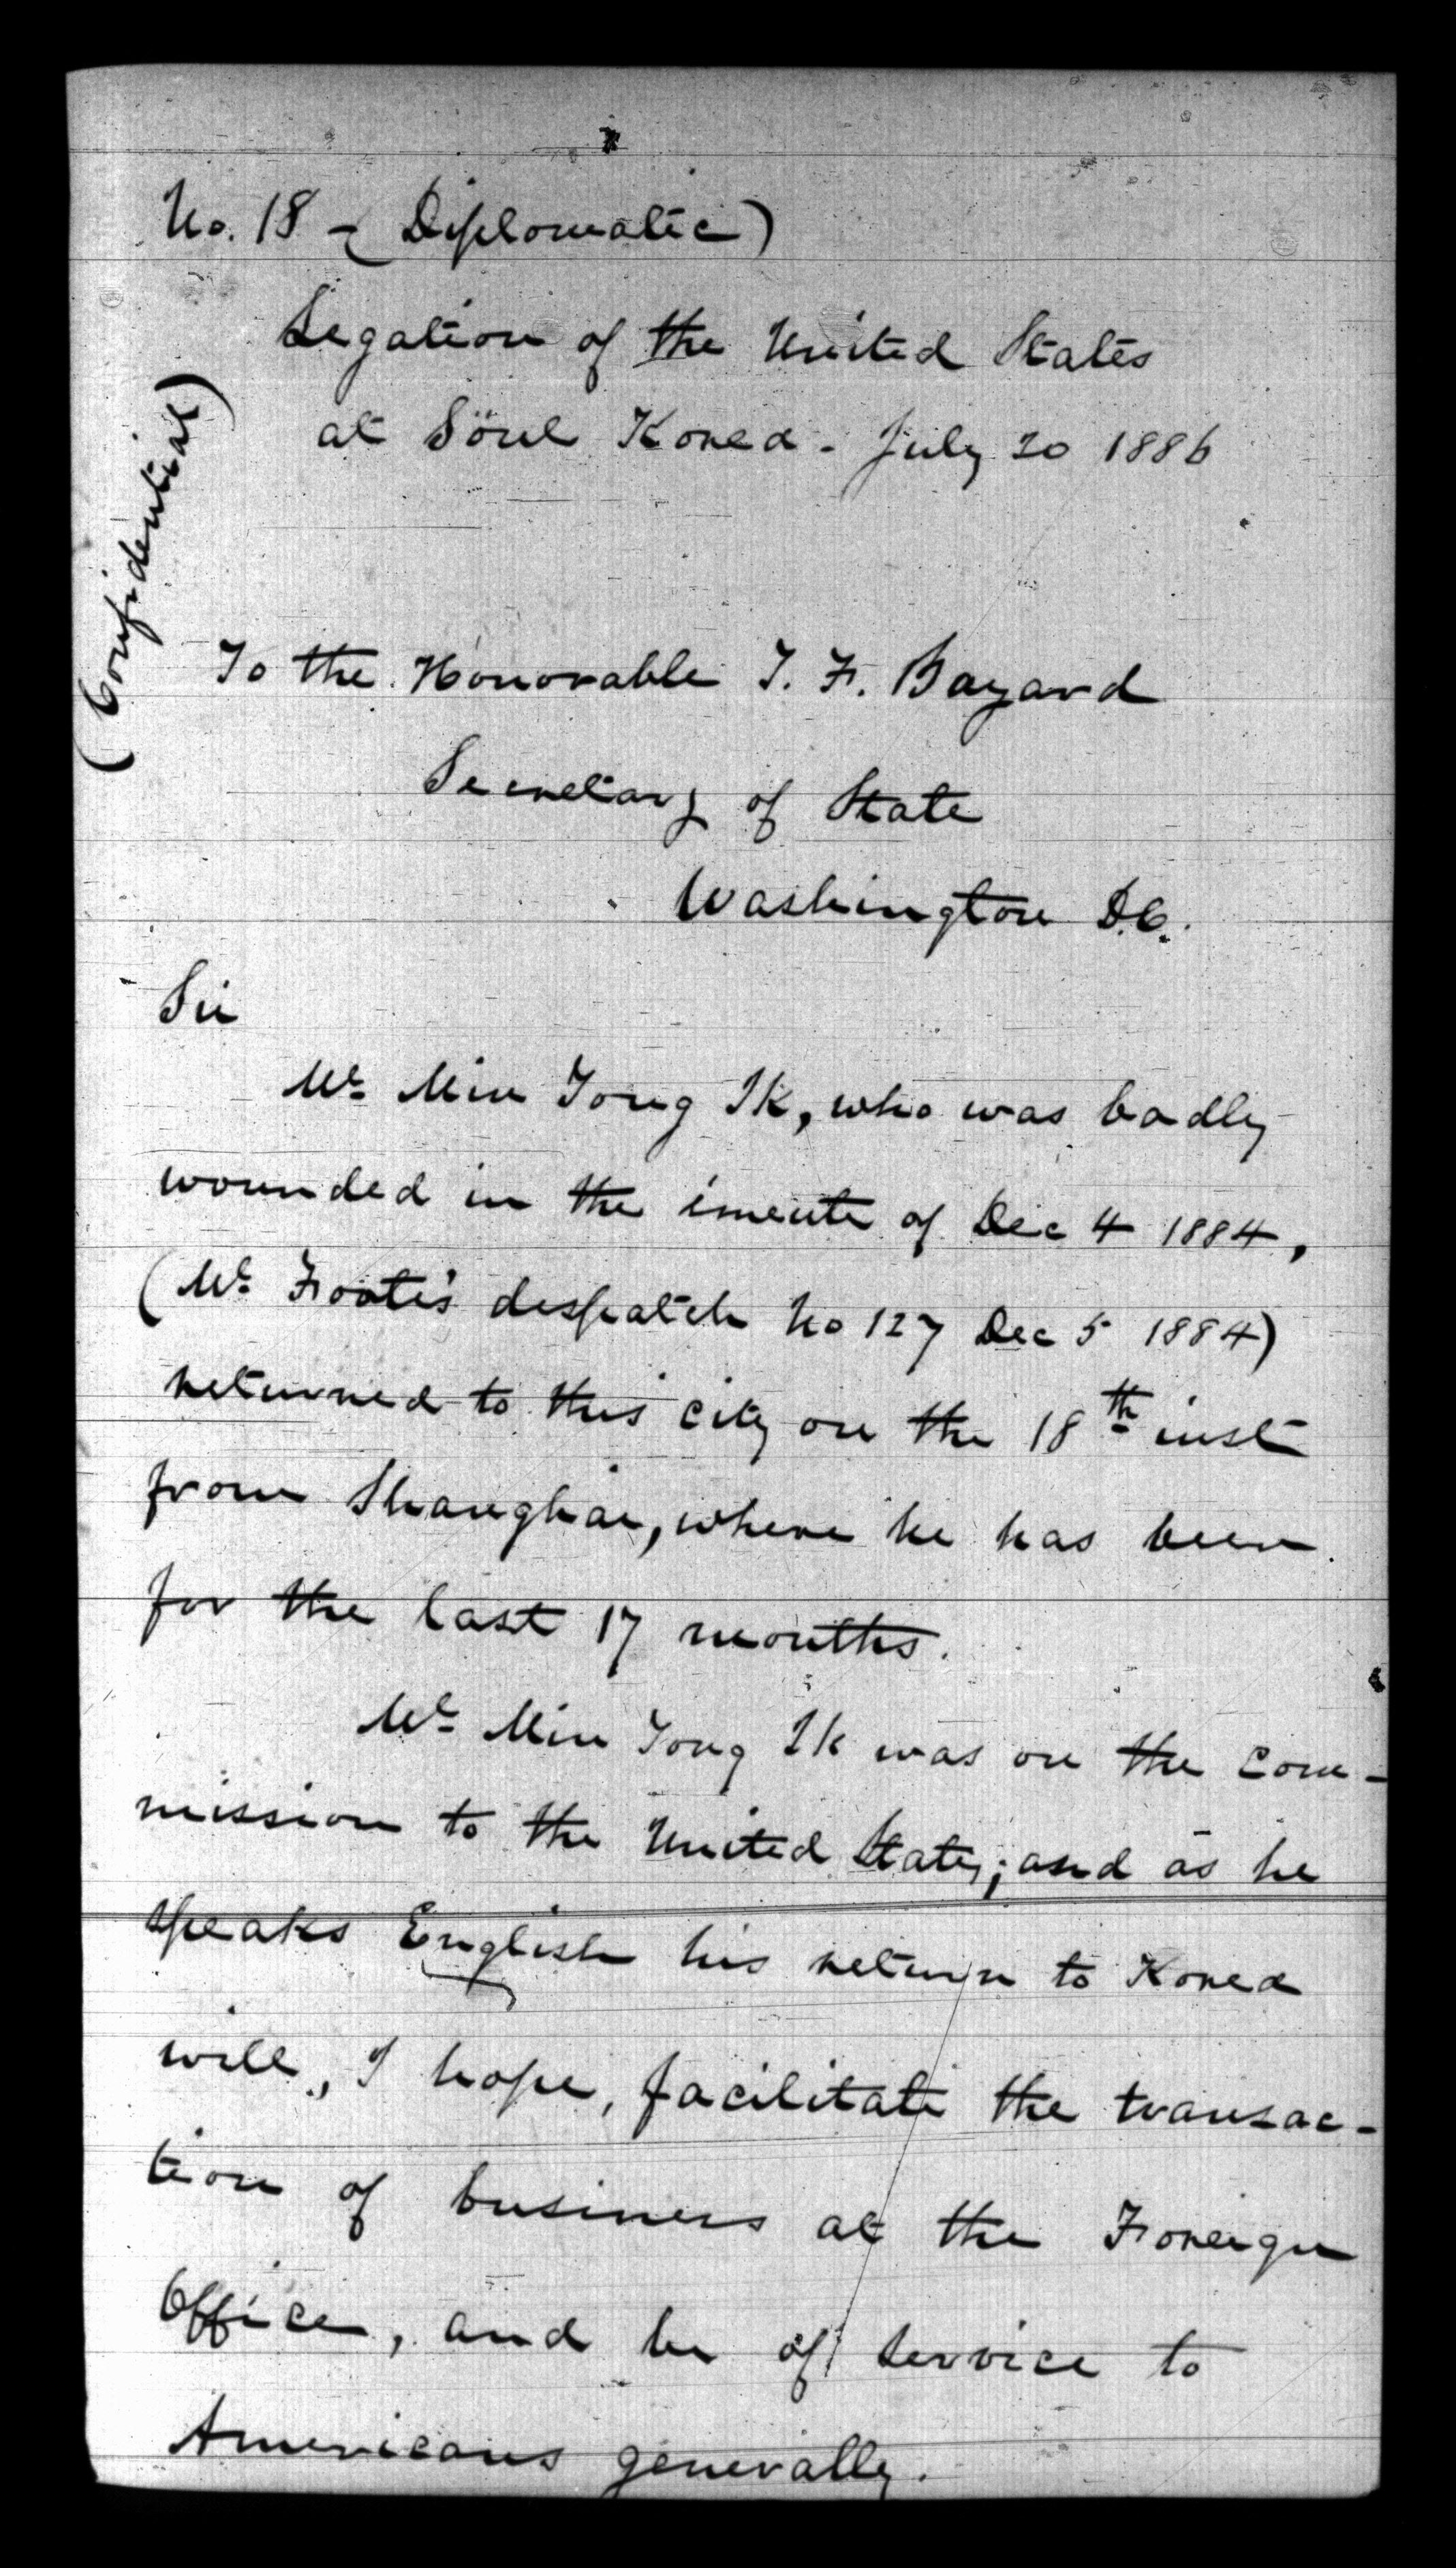 No. 18 - (Diplomatic)
Legation of the United States
at Söul Korea - July 20 1886
(Confidential)
To the Honorable T. F. Bayard
Secretary of State
Washington D.C.
Sir
Mr Min Yong Ik, who was badly
wounded in the émeute of Dec 4 1884,
(Mr Foote's despatch No 127 Dec 5 1884)
returned to this city on the 18th inst
from Shanghai, where he has been
for the last 17 months.
Mr Min Yong Ik was on the com-
mission to the United States; and as he
speaks English his return to Korea
will, I hope, facilitate the transac-
tion of business at the Foreign
Office, and be of service to
Americans generally.